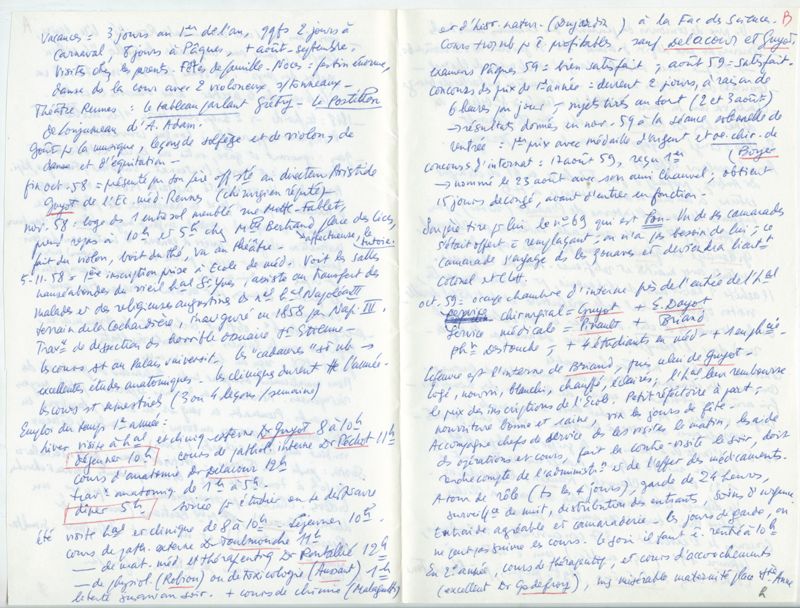 Vacances = 3 jours au 1er de l'an, qqfs 2 jours à
Carnaval, 8 jours à Pâques, + août-septembre.
Visites chez les parents. Fêtes de famille. Noces : festin énorme,
danse ds la cour avec 2 violoneux s/tonneaux -
Théâtre Rennes : le tableau parlant Grétry - le Postillon
de Lonjumeau d'A. Adam.
Goût pr la musique, leçons de solfège et de violon, de
danse et d'équitation -
fin oct. 58 = présenté par son père au directeur Aristide
Guyot de l'Ec. méd. Rennes (chirurgien réputé)
nov. 58 : loge ds 1 entresol meublé rue
prend repas à 10h et 5h chez Bertrand place des Lices,
fait du violon, boit du thé, va au théâtre - affectueuse, le
tutoie.
5-11-58 = 1ère inscription prise à Ecole de méd. Voit les salles
nauséabondes du vieil hal St Yves, assiste au transfert des
malades et des religieuses augustines ds nel hal Napoléon III
terrain de la Cochardière, inauguré en 1858 par Nap. III.
Travx de dissection ds horrible ossuaire St Etienne -
les cours st au Palais universit. les "cadavres" st nb →
excellentes études anatomiques - les cliniques durent tte l'année.
les cours st semestriels (3 ou 4 leçons / semaine)
Emploi du temps 1ère année :
hiver visite à hal et cliniq. externe Dr Guyot 8 à 10h
déjeuner 10h - cours de pathol. interne Dr Pochot 11h
cours d'anatomie Dr Delacour 12h
travx anatomiq. de 1h à 5h.
dîner 5h - soirée pr étudier ou se distraire
Eté visite hal et clinique de 8 à 10h - déjeuner 10h -
cours de path. externe Dr Toulmouche 11h
- de mat. méd. et thérapeutiq. Dr 12h
- de physiol. (Robiou) ou de toxicologie 1h
liberté jusqu'au soir. + cours de chimie (Malaguti)
et d'hist. natur. (Dujardin) à la Fac des Sciences. B
Cours trop nb pr ê profitables sauf Delacour et Guyot.
examens Pâques 59 = bien satisfait ; août 59 - satisfait.
Concours des prix de 1ère année : durent 2 jours, à raison de
6 heures par jour - sujets tirés au sort (2 et 3 août)
→ résultats donnés en nov. 59 à la séance solennelle de
rentrée = 1er prix avec médaille d'argent et de
(Boyer
concours d'internat : 17 août 59, reçu 1er
→ nommé le 23 août avec son ami Chauvel ; obtient
15 jours de congé, avant d'entrer en fonction -
Son père tire pr lui le n° 69 qui est bon. Un de ses camarades
s'était offert à remplaçant, on n'a pas besoin de lui ; ce
camarade s'engage ds les zouaves et deviendra lieutt
colonel et
oct. 59 = occupe chambre d'interne près de l'entrée de l'hal
service chirurgical = Guyot + E. Dayot
Service médicale = Pinault + Briand
phn Destouche - + 4 étudiants en méd. + 1 en phie
est l'interne de Briand, puis de Guyot -
logé, nourri, blanchi, chauffé, éclairé ; l'hal leur rembourse
le prix des inscriptions de l'Ecole. Petit réfectoire à part ;
nourriture bonne et saine, vin les jours de fête -
Accompagne chefs de service ds les visites le matin, les aide
ds opérations et cours, fait la contre-visite le soir, doit
rendre compte de l'administn et de l'effet des médicaments.
A tour de rôle (ts les 4 jours), garde de 24 heures,
surveillce de nuit, distribution des entrants, soins d'urgence.
Entraide agréable et camaraderie - les jours de garde, on
ne peut pas suivre les cours. le soir il faut ê. rentré à 10h
En 2e année, cours de thérapeutiq. et cours d'accouchements
(excellent Dr Godefroy), ms misérable maternité place Ste Anne